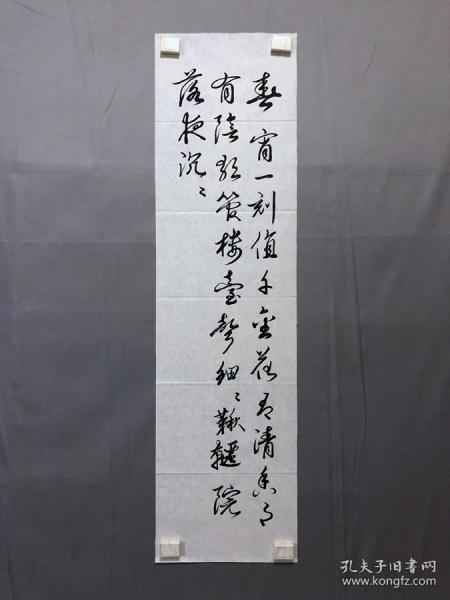 春宵一刻值千金花有清香月
有陰歌管樓臺聲細〻鞦韆院
落夜沉〻
孔夫子旧书网
www.kongfz.com